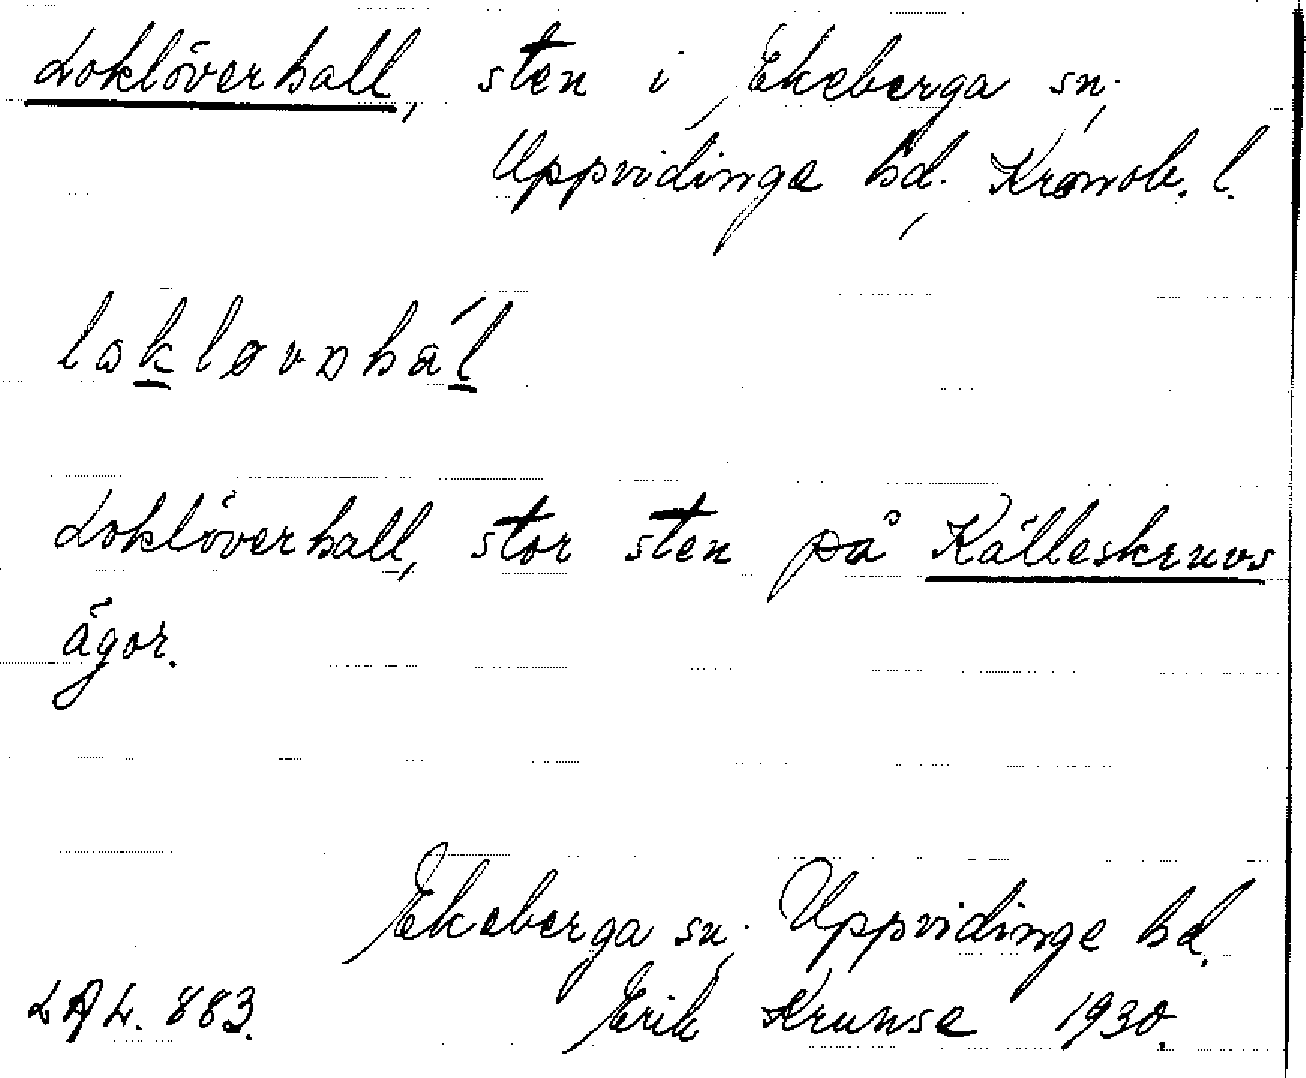 Loklöverhall, sten i Ekeberga sn.,
Uppvidinge hd., Kronob. l.
lokløvɒhál
Loklöverhall, stor sten på Källeskruvs
ägor.
Ekeberga sn. Uppvidinge hd.
LAL. 883. Erik Krunse 1930.